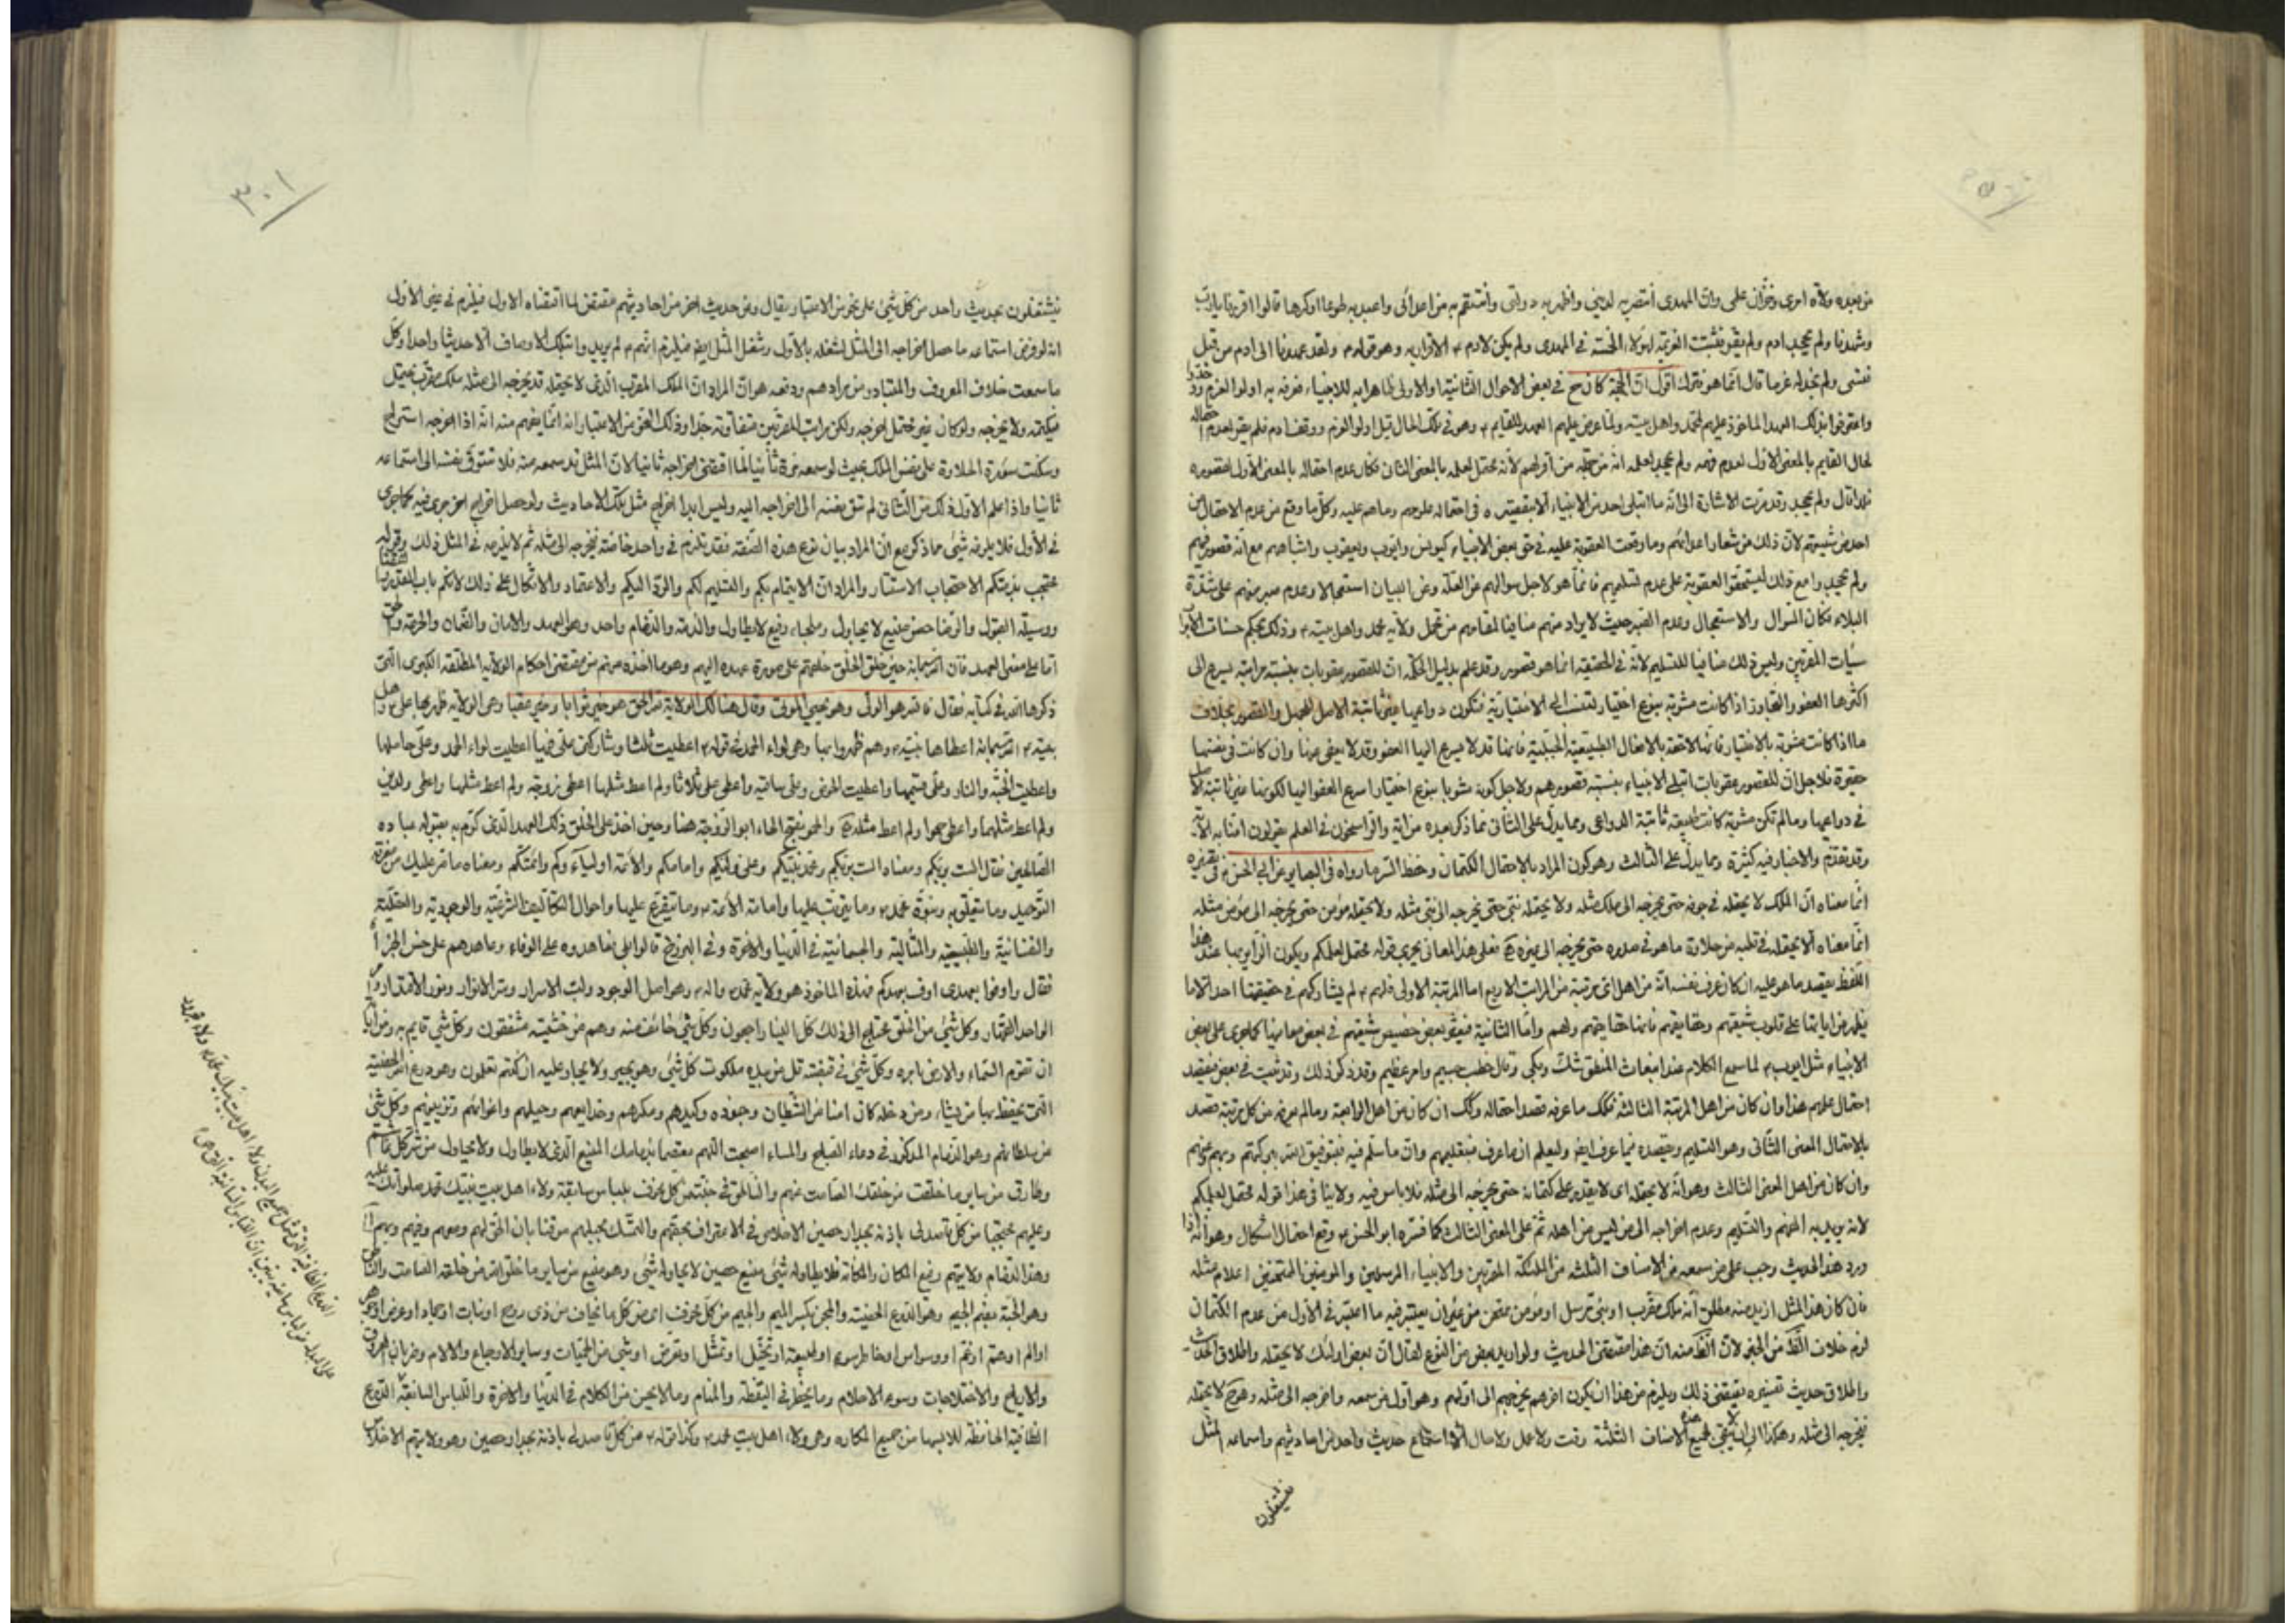 من بعده ولاة امرى وخزّان علمى وانّ المهدى انتصر به لدينى واظهر به دولتى وانتقم به من اعدائى واعبد به طوعا اوكرها قالوا اقررنا يا ربّ
وشهدنا ولم يجحد ادم ولم يقر فثبتت العزيمة لهؤلاء الخمسة فى المهدى ولم يكن لادم عزم الاقرار به وهو قوله ولقد عهدنا الى ادم من قبل
فنسى ولم نجد له عزما قال انّما هو فترك اقول انّ الحجّة كان ح فى بعض الاحوال الثانية او الاولى ظاهرا به للانبياء فعرفه به اولوا العزم
واعترفوا بذلك العهد الماخوذ عليهم لمحمّد واهل بيته ولمّا عرض عليهم العهد للقايم وهو فى تلك الحال قبل اولوا العزم ووقف ادم فلم يقر لعدم احتماله
لحال القايم بالمعنى الاول لعدم فهمه ولم يجحد لعلمه انه من جملة من اقر لهم لانه محتمل لعلمه بالمعنى الثانى فكان عدم احتماله بالمعنى الاول لقصوره
فلذا قال ولم يجحد وقد مرّت الاشارة الى انّه ما ابتلى احد من الانبياء الا بتقصيره فى احتماله علومهم وما هم عليه وكلّ ما وقع من عدم الاحتمال من
احد من شيعتهم لانّ ذلك من شعار اعدائهم وما وقعت العقوبة عليه فى حق بعض الانبياء كيونس وايوب ويعقوب واشباههم مع انّه قصور منهم
ولم يجحدوا مع ذلك ليستحقوا العقوبة على عدم تسليمهم فانما هو لاجل سؤالهم عن العلّة وعن البيان استعجالا وعدم صبر منهم على شدّة
البلاء فكان السؤال والاستعجال وعدم الصبر حيث لا يراد منهم منافيا لمقامهم من تحمّل ولاية محمد واهل بيته وذلك بحكم حسنات الابرار
سيّات المقربين وليس ذلك منافيا للتسليم لانّه فى الحقيقة انما هو قصور وقد علم بدليل الحكمة انّ للقصور عقوبات بنسبة مراتبه يسرع الى
اكثرها العفو والتجاوز اذا كانت مشوبة بنوع اختيار لتنسب الى الاختيارية فتكون دواعيها غير ثابتة الاصل للجهل والقصور بخلاف
ما اذا كانت مشوبة بالاختيار فانها لاحقة بالافعال الطبيعيّة الجبلّية فانها قد لا يسرع اليها العفو وقد لا يعفى عنها وان كانت فى نفسها
حقيرة فلاجل انّ للقصور عقوبات ابتلى الانبياء بنسبة قصورهم ولاجل كونه مشوبا بنوع اختيار اسرع العفو اليها لكونها غير ثابتة الاصل
فى دواعيها وما لم تكن مشوبة كانت طبيعية ثابتة الدواعى ومما يدلّ على الثانى ما ذكر بعده من اية والراسخون فى العلم يقولون امنّا به الآية
وقد تقدّم والاخبار فيه كثيرة ومما يدلّ على الثالث وهو كون المراد بالاحتمال الكتمان وحفظ السّر ما رواه فى البصاير عن ابى الحسن فى تفسيره
انّما معناه انّ الملك لا يحتمله فى جوفه حتى يخرجه الى ملك مثله ولا يحتمله نبىّ حتى يخرجه الى نبىّ مثله ولا يحتمله مؤمن حتى يخرجه الى مؤمن مثله
انّما معناه الا يحتمله فى قلبه من حلاوة ما هو فى صدره حتى يخرجه الى غيره فعلى هذا المعانى يجرى قوله محتمل لعلمكم ويكون الزاير بها عند هذا
اللفظ يقصد ما هو عليه ان كان عرف نفسه انّه من اهل اىّ مرتبة من المراتب الاربع اما المرتبة الاولى فلهم لم يشاركهم فى حقيقتها احد الا ما
يظهر من اياتها على قلوب شيعتهم وحقايقهم فانها حقايقهم ولهم وامّا الثانية فيعثر بعض خصيص شيعتهم فى بعض معانيها كما جرى على بعض
الانبياء مثل ايوب لما سمع الكلام عند انبعاث المنطق شكّ وبكى وقال خطب جسيم وامر عظيم وقد ذكر ذلك وقد ثبت فى بعض فيقصد
احتمال علمهم هذا وان كان من اهل المرتبة الثالثة فكلّ ما عرفه قصد احتماله وكك ان كان من اهل الرابعة وما لم يعرفه من كل مرتبة قصد
بالاحتمال المعنى الثّانى وهو التسليم ويقصده فيما عرف ايض وليعلم ان ما عرف فبتعليمهم وانّ ما سلّم فيه فبتوفيق الله ببركتهم وبهم عنهم
وان كان من اهل المعنى الثالث وهو انّه لا يحتمله اى لا يقدر على كتمانه حتى يخرجه الى مثله فلا باس فيه ولا ينافى هذا قوله محتمل لعلمكم
لانه يريد به الفهم والتسليم وعدم اخراجه الى من ليس من اهله ثمّ على المعنى الثالث كما فسّره ابو الحسن وقع احتمال اشكال وهو انّه اذا
ورد هذا الحديث وجب على من سمعه من الاصناف الثلثة من الملئكة المقربين والانبياء المرسلين والمومنين الممتحنين اعلام مثله
فان كان هذا المثل ازيد منه مطلق انّه ملك مقرب او نبىّ مرسل او مؤمن ممتحن من غير ان يعتبر فيه ما اعتبر فى الاول من عدم الكتمان
لزم خلاف الظّ من الخبر لانّ الظّ منه انّ هذا مقتضى الحديث ولو اريد بعض من النوع لقال انّ بعض اولئك لا يحتمله واطلاق الحديث
واطلاق حديث تفسيره يقتضى ذلك ويلزم من هذا ان يكون اخرهم يخرجهم الى اولهم وهو اول من سمعه واخرجه الى مثله وهو ح لا يحتمله
فيخرجه الى مثله وهكذا الى ان لا يبقى لجميع هذه الاصناف الثلثة وقت ولا عمل ولا حال الا استماع حديث واحد من احاديثهم واسماعه المثل
فيشتغلون
٣٠١
فيشتغلون بحديث واحد من كلّ شىء على نحو من الاعتبار يقال ومن حديث اخر من احاديثهم مقتض لما اقتضاه الاول فيلزم فى غير الاول
انه لو فرض استماعه ما حصل اخراجه الى المثل لشغله بالاول وشغل المثل ايض فيلزم انهم لم يريدوا بتلك الاوصاف الا حديثا واحدا وكلّ
ما سمعت خلاف المعروف والمتبادر من مرادهم ودفعه هو انّ المراد انّ الملك المقرب الّذى لا يحتمله قد يخرجه الى مثله ملك مقرب يحتمل
فيكتمه ولا يخرجه ولو كان غير محتمل اخرجه ولكن مراتب المقربين متفاوتة جدّا وذلك النحو من الاعتبار انه انّما يفهم منه انّه اذا اخرجه استراح
وسكنت سَورة الحلاوة على نفس الملك بحيث لو سمعه مرة ثانيا لما اقتضى اخراجه ثانيا لانّ المثل قد سمعه منه فلا تتوق نفسه الى استماعه
ثانيا واذا علم الاول ذلك من الثانى لم تتق نفسه الى اخراجه اليه وليس ابدا اخراج مثل تلك الاحاديث ولو حصل اخراج اخر جرى فيه كما جرى
فى الاول فلا يلزمه شىء مما ذكر مع انّ المراد بيان نوع هذه الصّفة فقد تلزم فى واحد خاصّة فيخرجه الى مثله ثم لا يلزمه فى المثل ذلك وقوله
محتجب بذمّتكم الاحتجاب الاستتار والمراد انّ الايتمام بكم والتسليم لكم والردّ اليكم والاعتماد والاتكال على ذلك لانكم باب الله
ووسيلة القبول والرضا حصن منيع لا يحاول وملجاء رفيع لا يطاول والذمة والذمام واحد وهو العهد والامان والضّمان والحرمة والحق
امّا على معنى العهد فان الله سبحانه حين خلق الخلق خلقهم على صورة عهده اليهم وهو ما اخذه منهم من مقتضى احكام الولاية المطلقة الكبرى التى
ذكرها الله فى كتابه فقال فالله هو الولىّ وهو يحيي الموتى وقال هنالك الولاية لله الحق هو خير ثوابا وخير عقبا وهى الولاية ظهر بها على واهل
بيته الله سبحانه اعطاها نبيّه وهم ظهروا بها وهى لواء الحمد فى قوله اعطيت ثلثا وشاركنى علىّ فيها اعطيت لواء الحمد وعلىّ حاملها
واعطيت الجنّة والنار وعلىّ قسيمها واعطيت الحوض وعلىّ ساقيه واعطى علىّ ثلاثا ولم اعط مثلها اعطى زوجة ولم اعط مثلها واعطى ولدين
ولم اعط مثلهما واعطى حموا ولم اعط مثله والحمو بفتح الحاء ابو الزوجة هنا وحين اخذ على الخلق ذلك العهد الّذى كرّم به بقبوله عباده
الصّالحين فقال الست بربكم ومعناه الست بربّكم ومحمّد نبيّكم وعلى وليّكم وامامكم والائمة اولياءكم وائمتكم ومعناه ما تقر عليك من معرفة
التوحيد وما يتعلّق به ونبوّة محمّد وما يترتّب عليها وامامة الائمة وما يتفرّع عليها واحوال التكاليف الشرعيّة والوجودية والعقليّة
والنفسانيّة والطبيعيّة والمثالية والجسمانيّة فى الدّنيا والاخرة وفى البرزخ قالوا بلى فعاهدوه على الوفاء وعاهدهم على حسن الجزاء
فقال واوفوا بعهدى اوف بعهدكم فهذه الماخوذ هو ولاية محمد واله وهو اصل الوجود ولبّ الاسرار وسرّ الانوار ونور الاقتدار
الواحد القهّار وكلّ شىء من الخلق محتاج الى ذلك كل الينا راجعون وكل شىء خائف منه وهم من خشيته مشفقون وكل شىء قايم به ومن اياته
ان تقوم السّماء والارض بامره وكلّ شىء فى قبضته قل من بيده ملكوت كل شىء وهو يجير ولا يجار عليه ان كنتم تعلمون وهو درع الله الحصينة
التى يحفظ بها من يشاء ومن دخله كان امنا من الشّيطان وجنوده وكيدهم ومكرهم وخدايعهم وحيلهم واغوائهم وتزيينهم وكلّ شىء
من سلطانهم وهو الذمام المذكور فى دعاء الصّباح والمساء اصبحت اللّهم معتصما بذمامك المنيع الّذى لا يطاول ولا يحاول من شرّ كلّ غاشم
وطارق من ساير ما خلقت من خلقك الصّامت منهم والنّاطق فى جنّة من كل مخوف بلباس سابغة ولاء اهل بيت نبيّك محمد صلواتك عليه
وعليهم محتجبا من كلّ قاصد لى باذيّة بجدار حصين الاخلاص فى الاعتراف بحقهم والتمسّك بحبلهم موقنا بان الحقّ لهم ومعهم وفيهم وبهم
وهذا الذمام ولايتهم رفيع المكان والمكانة فلا يطاوله شىء منيع حصين لا يحاوله شىء وهو منيع من ساير ما خلق الله من خلقه الصّامت والناطق
وهو الجنّة بضم الجيم وهو الدرع الحصينة والمجن بكسر الميم والجيم من كلّ مخوف اى من كلّ ما يخاف من ذى روح او نبات او جماد او عرض او جوهر
او الم او همّ او غمّ او وسواس او خاطر سوء او طبيعة او تخيّل او تمثّل او تمرّض او شىء من الحمّيات وساير الاوجاع والالام وضربان العروق
والارياح والاختلاجات وسوء الاحلام وما يخطر فى اليقظة والمنام وما لا يحسن من الكلام فى الدّنيا والاخرة واللباس السابغة الدرع
الضّافية الحافظة للابسها من جميع المكاره وهى ولاء اهل بيت محمد وكذا قوله من كلّ قاصد لى باذيّة بجدار حصين وهو ولايتهم الاخلاص